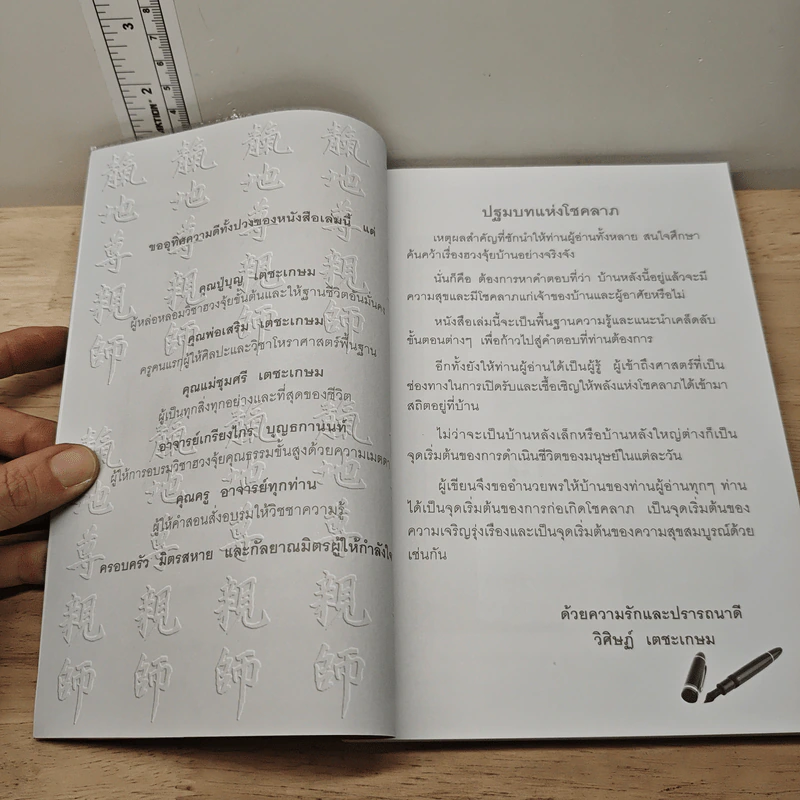 ขออุทิศความดีทั้งปวงของหนังสือเล่มนี้ แด่
คุณปู่บุญ เตชะเกษม
ผู้หล่อหลอมวิชาฮวงจุ้ยขั้นต้นและให้ฐานชีวิตอันมั่นคง
คุณพ่อเสริม เตชะเกษม
ครูคนแรกผู้ให้ศิลปะและวิชาโหราศาสตร์พื้นฐาน
คุณแม่ชุมศรี เตชะเกษม
ผู้เป็นทุกสิ่งทุกอย่างและที่สุดของชีวิต
อาจารย์เกรียงไกร บุญธกานนท์
ผู้ให้การอบรมวิชาฮวงจุ้ยคุณธรรมขั้นสูงด้วยความเมตตา
คุณครู อาจารย์ทุกท่าน
ผู้ให้คำสอนสั่งอบรมให้วิชชาความรู้
ครอบครัว มิตรสหาย และกัลยาณมิตรผู้ให้กำลังใจ
地 地 地 地
尊 尊 尊 尊
親 親 親 親
師 師 師 師
地 地 地 地
尊 尊 尊 尊
親 親 親 親
師 師 師 師
ปฐมบทแห่งโชคลาภ
เหตุผลสำคัญที่ชักนำให้ท่านผู้อ่านทั้งหลาย สนใจศึกษา
ค้นคว้าเรื่องฮวงจุ้ยบ้านอย่างจริงจัง
นั่นก็คือ ต้องการหาคำตอบที่ว่า บ้านหลังนี้อยู่แล้วจะมี
ความสุขและมีโชคลาภแก่เจ้าของบ้านและผู้อาศัยหรือไม่
หนังสือเล่มนี้จะเป็นพื้นฐานความรู้และแนะนำเคล็ดลับ
ขั้นตอนต่างๆ เพื่อก้าวไปสู่คำตอบที่ท่านต้องการ
อีกทั้งยังให้ท่านผู้อ่านได้เป็นผู้รู้ ผู้เข้าถึงศาสตร์ที่เป็น
ช่องทางในการเปิดรับและเชื้อเชิญให้พลังแห่งโชคลาภได้เข้ามา
สถิตอยู่ที่บ้าน
ไม่ว่าจะเป็นบ้านหลังเล็กหรือบ้านหลังใหญ่ต่างก็เป็น
จุดเริ่มต้นของการดำเนินชีวิตของมนุษย์ในแต่ละวัน
ผู้เขียนจึงขออำนวยพรให้บ้านของท่านผู้อ่านทุกๆ ท่าน
ได้เป็นจุดเริ่มต้นของการก่อเกิดโชคลาภ เป็นจุดเริ่มต้นของ
ความเจริญรุ่งเรืองและเป็นจุดเริ่มต้นของความสุขสมบูรณ์ด้วย
เช่นกัน
ด้วยความรักและปรารถนาดี
วิศิษฏ์ เตชะเกษม